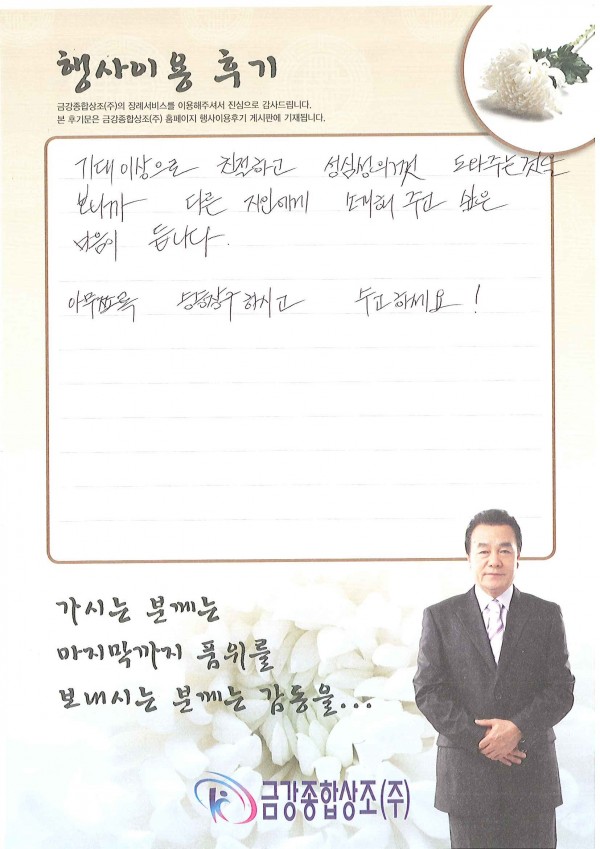 행사이용 후기
금강종합상조(주)의 장례서비스를 이용해주셔서 진심으로 감사드립니다.
본 후기문은 금강종합상조(주) 홈페이지 행사이용후기 게시판에 기재됩니다.
기대이상으로 친절하고 성심성의껏 도와주는것을
보니까 다른 지인에게 소개해 주고 싶은
마음이 듭니다.
아무쪼록 하시고 수고하세요!
가시는 분께는
마지막까지 품위를
보내시는 분께는 감동을...
금강종합상조(주)